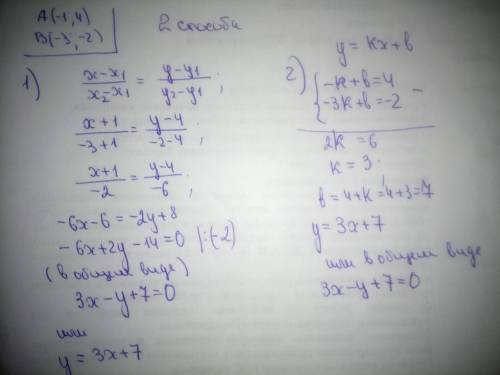 A(-1, 4)
B(-3, -2)
2 способа
1)
x-x₁/x₂-x₁ = y-y₁/y₂-y₁ ;
x+1/-3+1 = y-4/-2-4 ;
x+1/-2 = y-4/-6 ;
-6x-6 = -2y+8
-6x+2y-14=0 |:(-2)
(в общем виде)
3x-y+7=0
или
y = 3x+7
y = kx+b
2)
{-k+b=4
-3k+b=-2 -
2k = 6
k = 3 ;
b = 4+k = 4+3=7
y = 3x+7
или в общем виде
3x-y+7=0